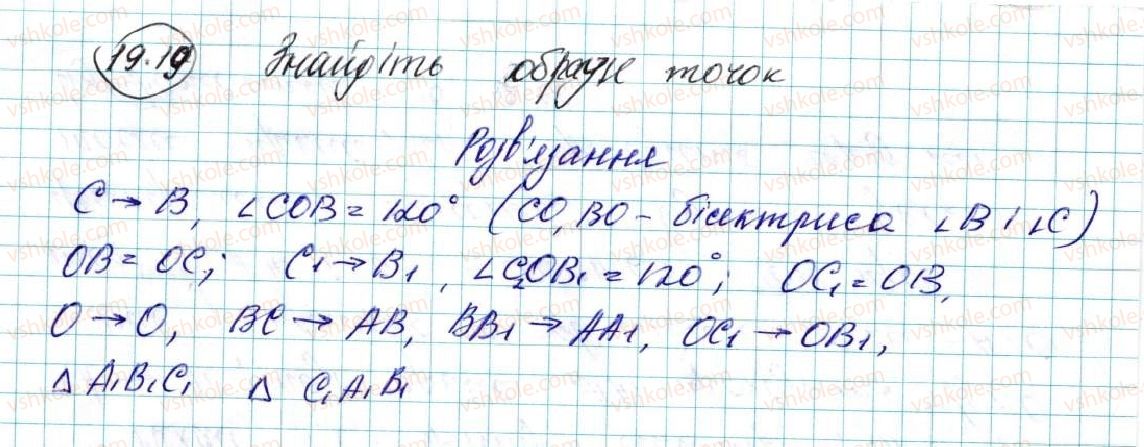 19.19 Знайдіть образи точок
Розв'язання
C → B, ∠COB = 120° (CO, BO - бісектриса ∠B і ∠C)
OB = OC; C₁ → B₁, ∠C₂OB₁ = 120°; OC₁ = OB,
O → O, BC → AB, BB₁ → AA₁, OC₁ → OB₁,
△ A₁B₁C₁ △ C₁A₁B₁